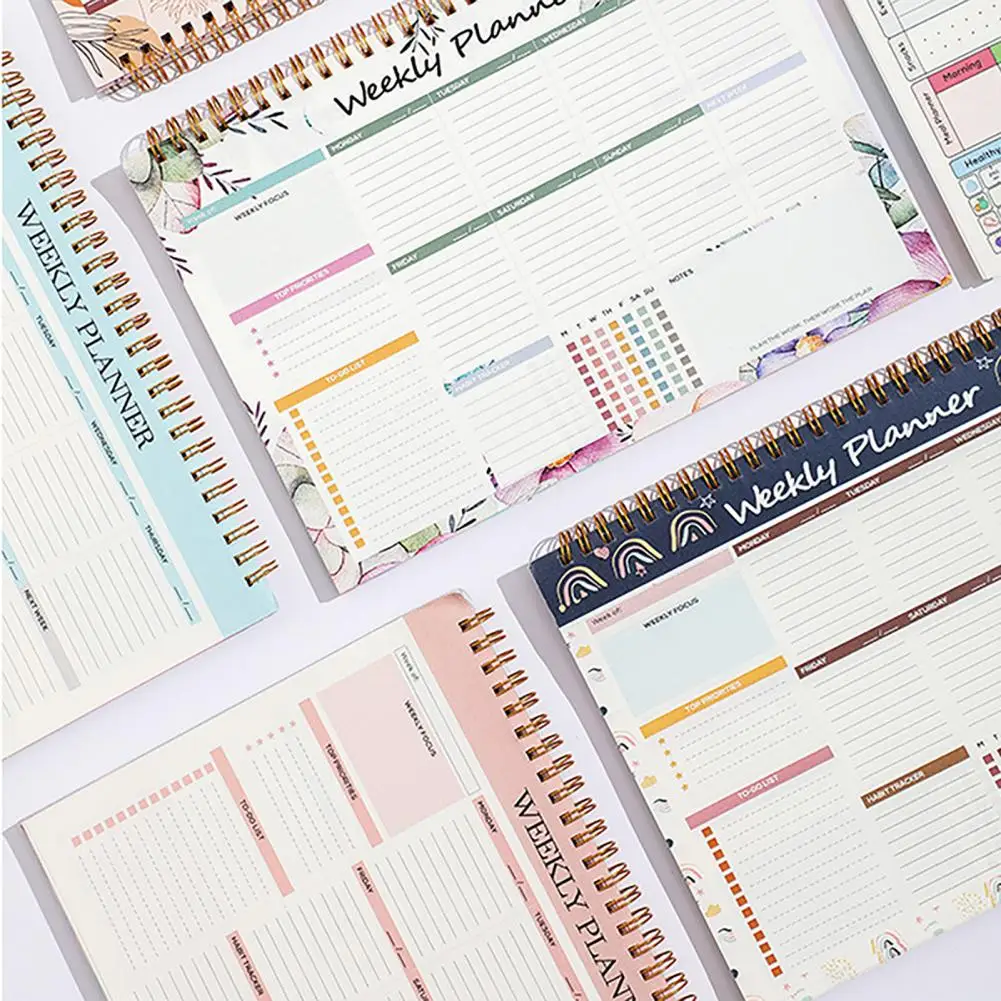 Weekly Planner
MONDAY
TUESDAY
WEDNESDAY
Week of:
WEEKLY FOCUS
FRIDAY
SATURDAY
SUNDAY
NEXT WEEK
TOP PRIORITIES
TO-DO LIST
HABIT TRACKER
M T W TH F SA SU
NOTES
PLAN THE WORK, THEN WORK THE PLAN
Snacks
Meal Planner
Morning
Healthy
WEEKLY PLANNER
TUESDAY
WEDNESDAY
THURSDAY
NEXT WEEK
Weekly Planner
MONDAY
TUESDAY
WEDNESDAY
Week of:
WEEKLY FOCUS
FRIDAY
SATURDAY
TOP PRIORITIES
TO-DO LIST
HABIT TRACKER
M T
WEEKLY PLANNER
Week of:
WEEKLY FOCUS
TOP PRIORITIES
TO-DO LIST
MONDAY
TUESDAY
FRIDAY
HABIT TRACKER